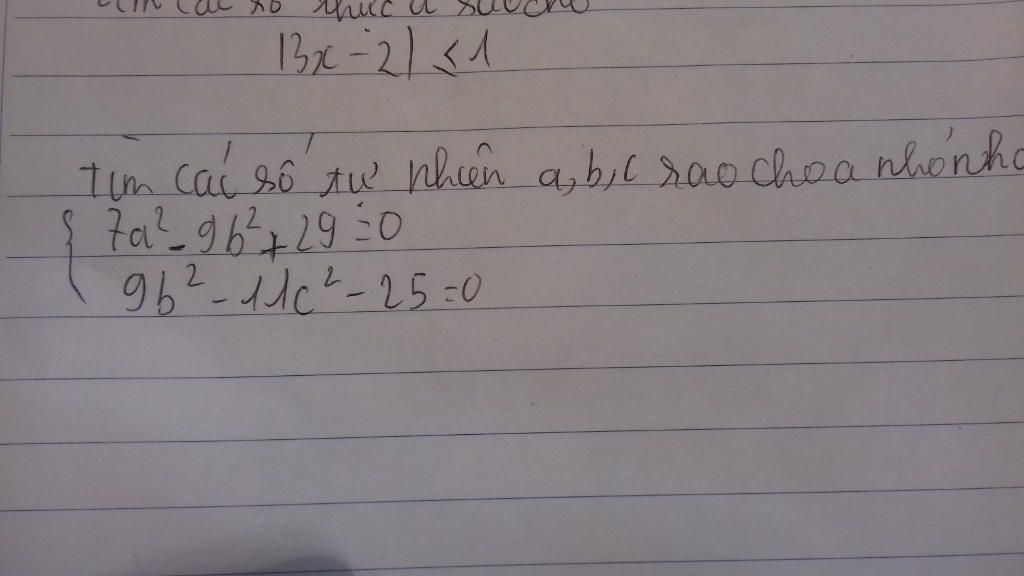 tìm các số thực a sao cho
|3x - 2| < 1
tìm các số tự nhiên a, b, c sao cho a nhỏ
7a² - 9b² + 29 = 0
9b² - 11c² - 25 = 0